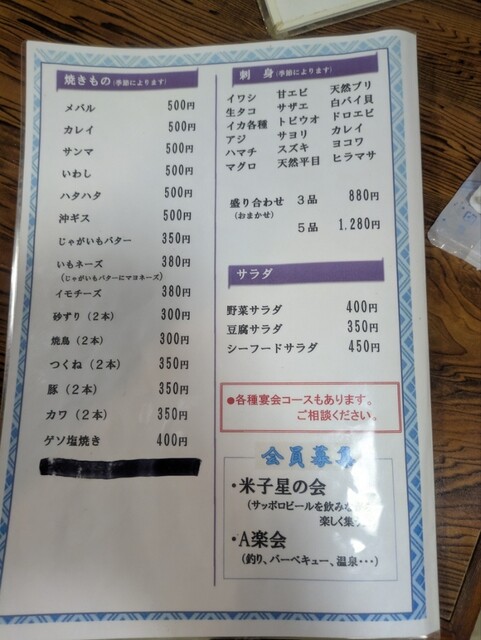 焼きもの(季節によります)
メバル 500円
カレイ 500円
サンマ 500円
いわし 500円
ハタハタ 500円
沖ギス 500円
じゃがいもバター 350円
いもネーズ 380円
(じゃがいもバターにマヨネーズ)
イモチーズ 380円
砂ずり(2本) 300円
焼鳥(2本) 300円
つくね(2本) 350円
豚(2本) 350円
カワ(2本) 350円
ゲソ塩焼き 400円
刺 身(季節によります)
イワシ 甘エビ 天然ブリ
生タコ サザエ 白バイ貝
イカ各種 トビウオ ドロエビ
アジ サヨリ カレイ
ハマチ スズキ ヨコワ
マグロ 天然平目 ヒラマサ
盛り合わせ 3品 880円
(おまかせ)
5品 1.280円
サラダ
野菜サラダ 400円
豆腐サラダ 350円
シーフードサラダ 450円
●各種宴会コースもあります。
ご相談ください。
会員募集
・米子星の会
(サッポロビールを飲みな
楽しく集
・A楽会
(釣り、バーベキュー、温泉・・・)